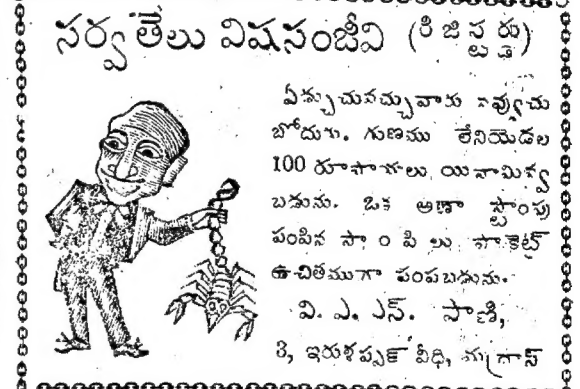 సర్వ తేలు విషసంజీవి (రిజిస్టర్డు)
ఏడ్చుచువచ్చువారు నవ్వుచు
బోదురు. గుణము లేనియెడల
100 రూపాయలు యినామివ్వ
బడును. ఒక అణా స్టాంపు
పంపిన సాంపిలు పాకెట్
ఉచితముగా పంపబడును.
వి. ఎ. ఎస్. సాణి,
3, ఇరుళప్పక్ వీధి, మద్రాస్